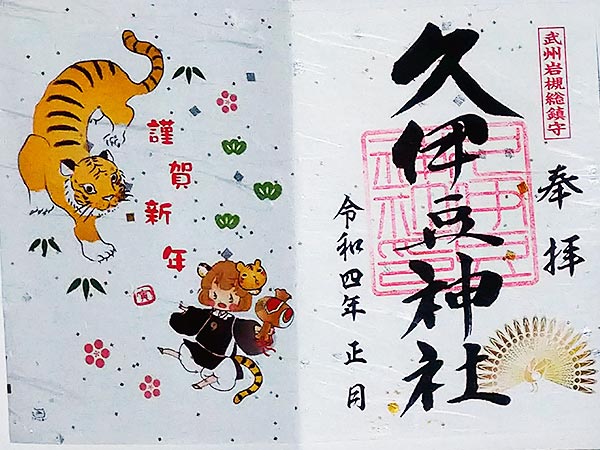 武州岩槻総鎮守
奉拝
久伊豆神社
令和四年正月
謹賀新年
寅